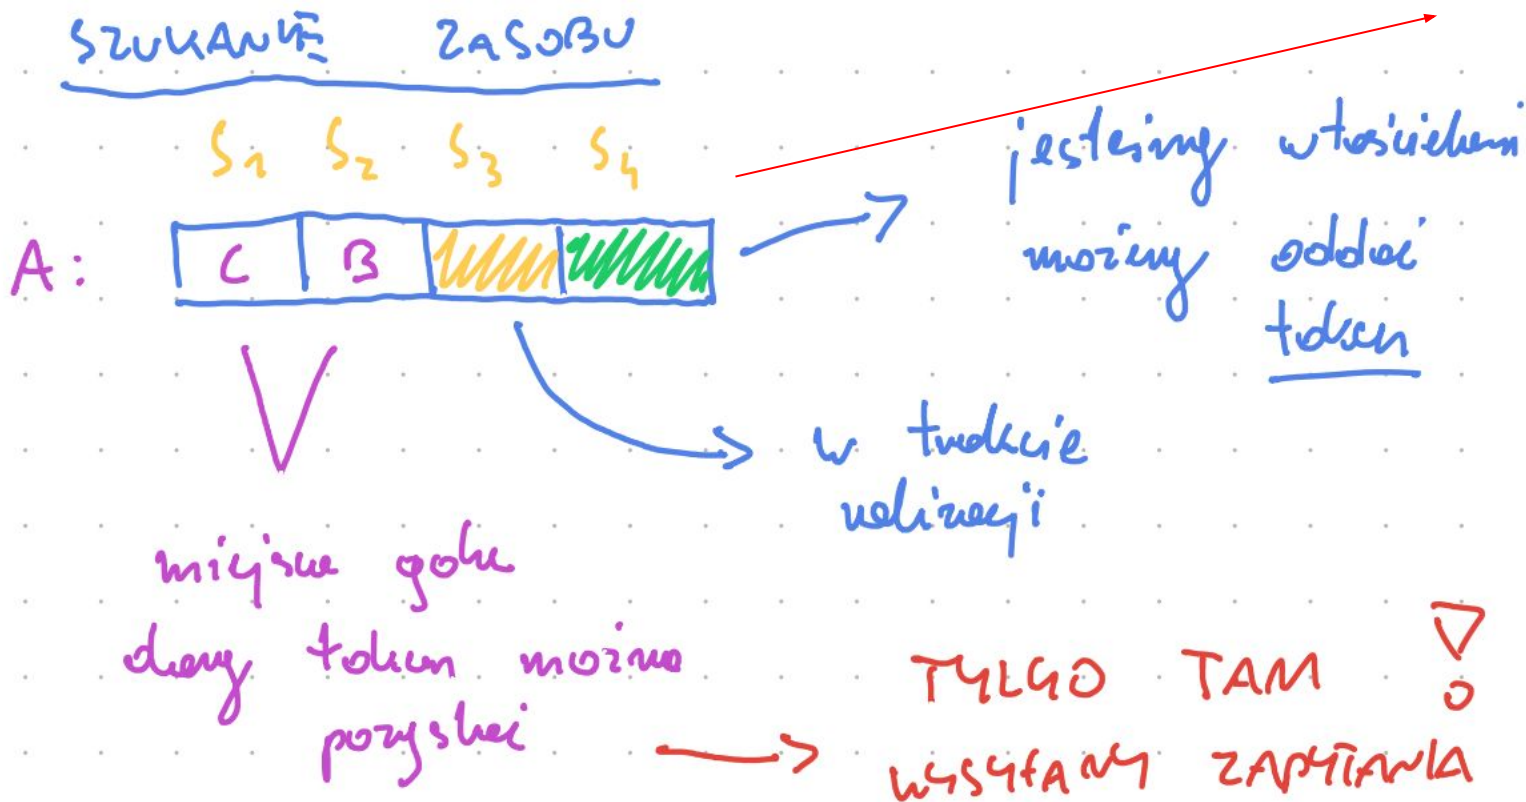 SZUKANIE ZASOBU
S1 S2 S3 S4
A: C B
jesteśmy właścicielem
możemy oddać
token
w trakcie
realizacji
miejsce gdzie
dany token można
pozyskać
TYLKO TAM !
WYSYŁAMY ZAPYTANIA